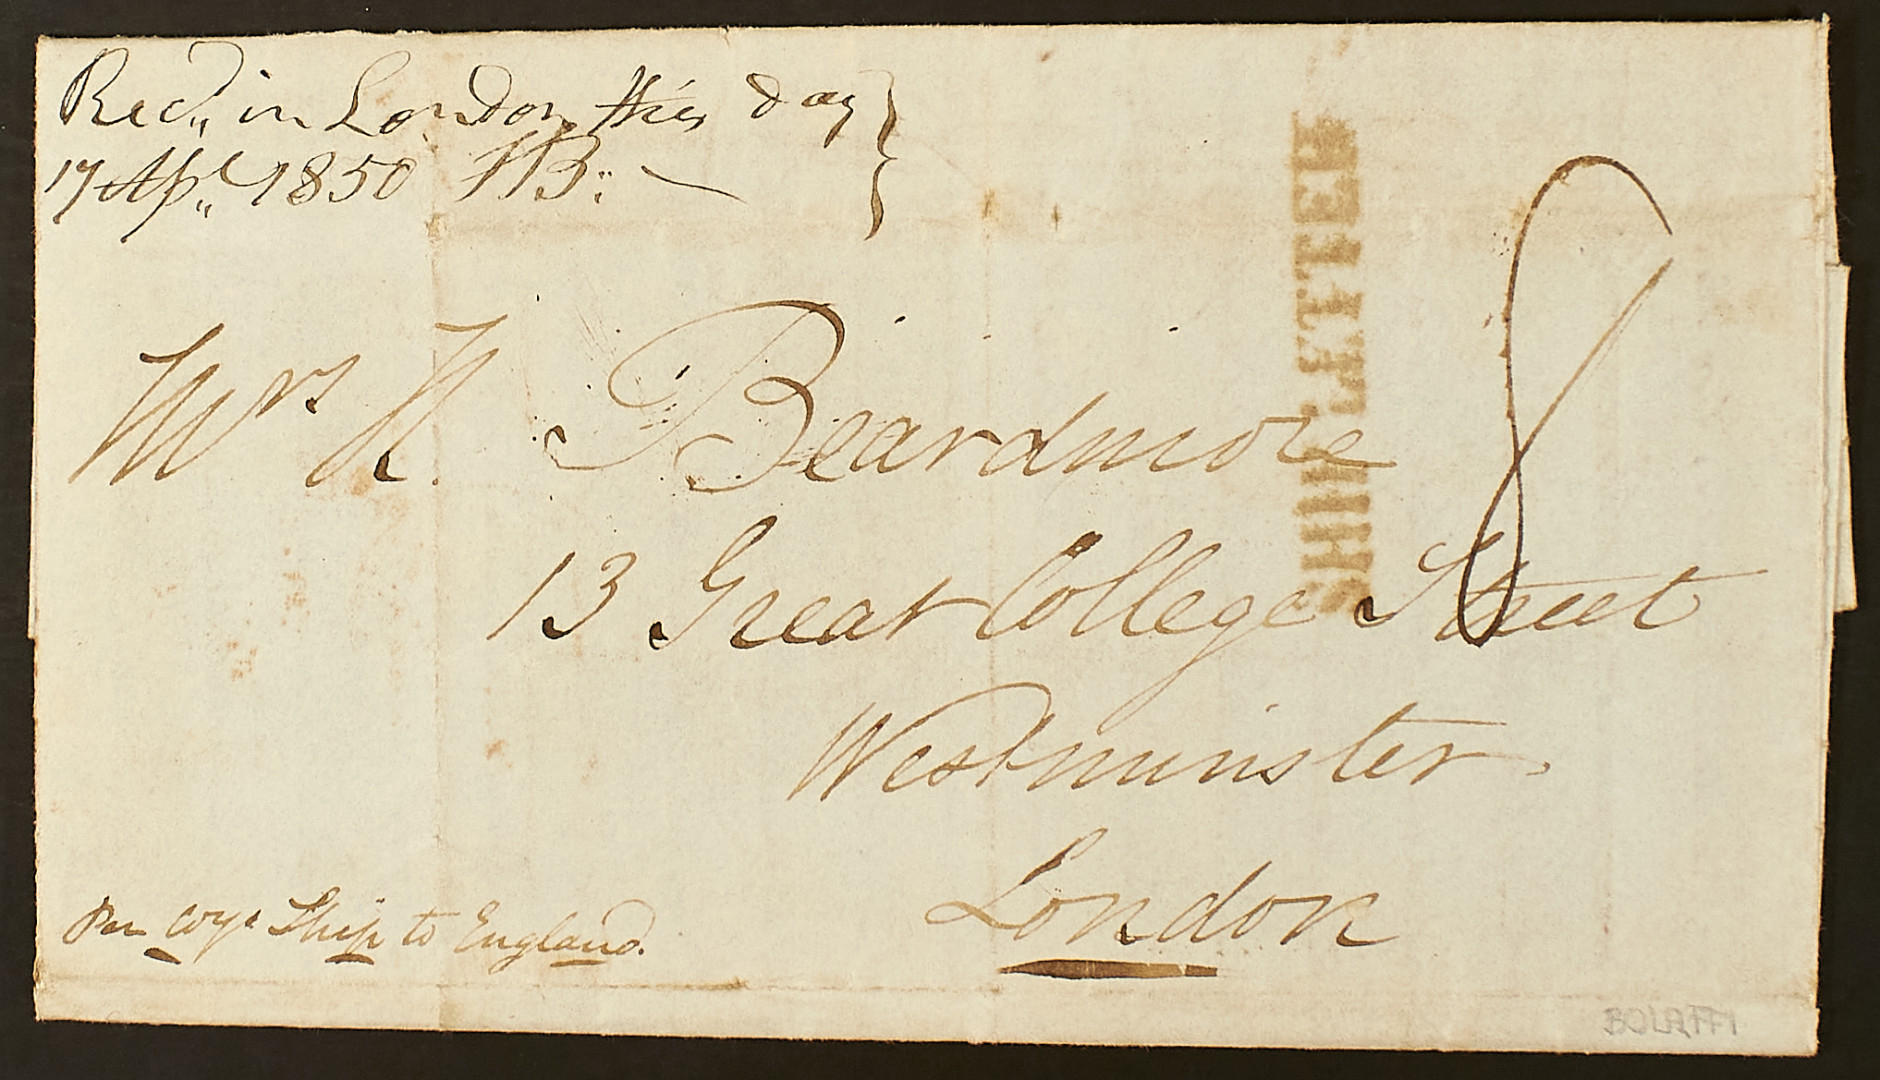 Recd,, in London this day
17 Apl,, 1850 HB:
SHIP LETTER
8
Mrs H. Beardmore
13 Great College Street
Westminster
London
Per Coy's Ship to England.
BOLAFFI